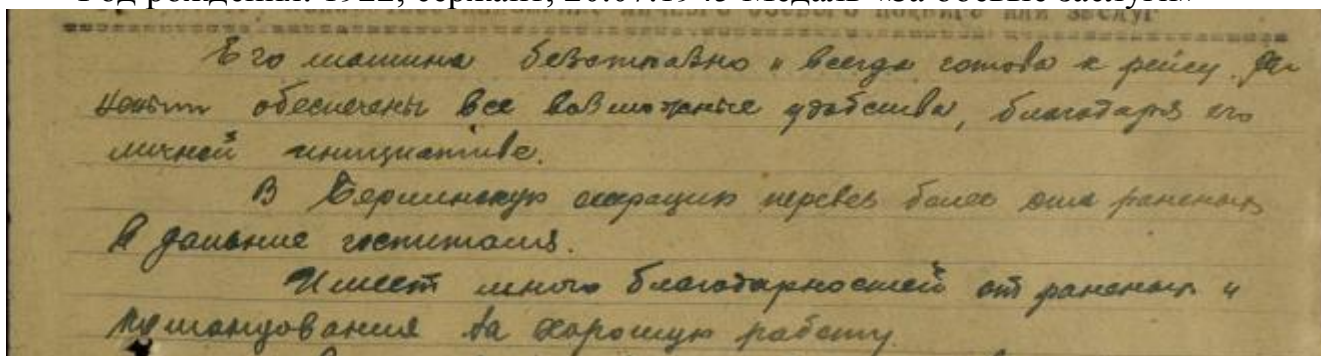 Год рождения: 1922, сержант, 20.07.1945 Медаль «За боевые заслуги»
личного боевого подвига или заслуг
Его машина безотказно и всегда готова к рейсу.
обеспечены все возможные удобства, благодаря его
личной инициативе.
В Берлинскую операцию перевез более ста раненых
в дальние госпиталя.
Имеет много благодарностей от раненых и
командования за хорошую работу